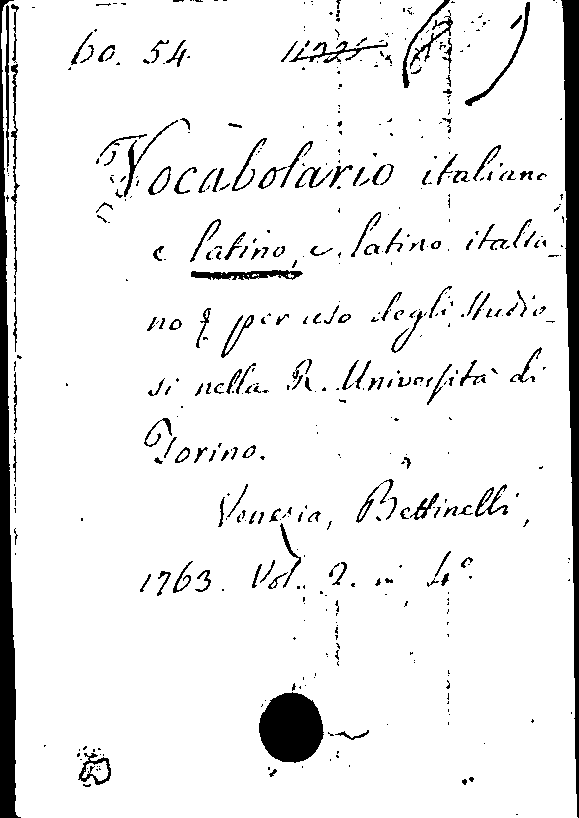 60. 54
Vocabolario italiano
e latino, e latino italia_
no per uso degli studio_
si nella R. Università di
Torino.
Venezia, Bettinelli,
1763. Vol. 2. in 4º